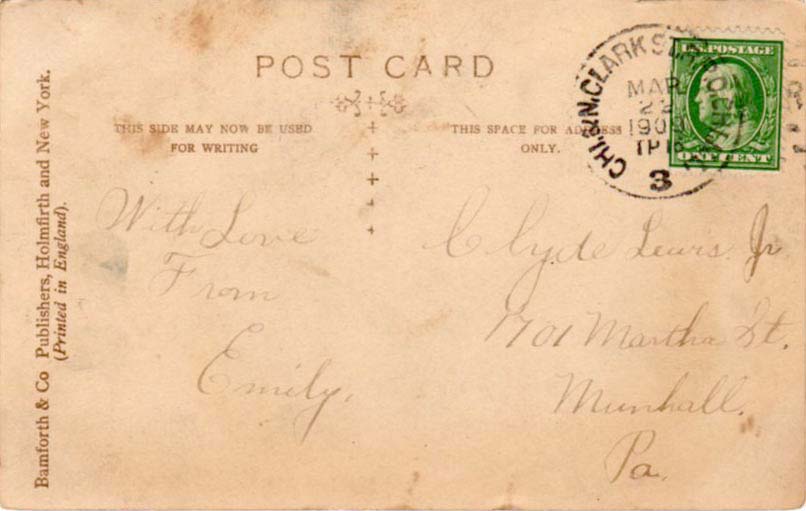 POST CARD
THIS SIDE MAY NOW BE USED
FOR WRITING
THIS SPACE FOR ADDRESS
ONLY.
U.S. POSTAGE
ONE CENT
CHI. & N. CLARK ST.
MAR
22
1909
3
With Love
From
Emily.
Clyde Lewis Jr
1701 Martha St.
Munhall.
Pa.
Bamforth & Co Publishers, Holmfirth and New York.
(Printed in England).